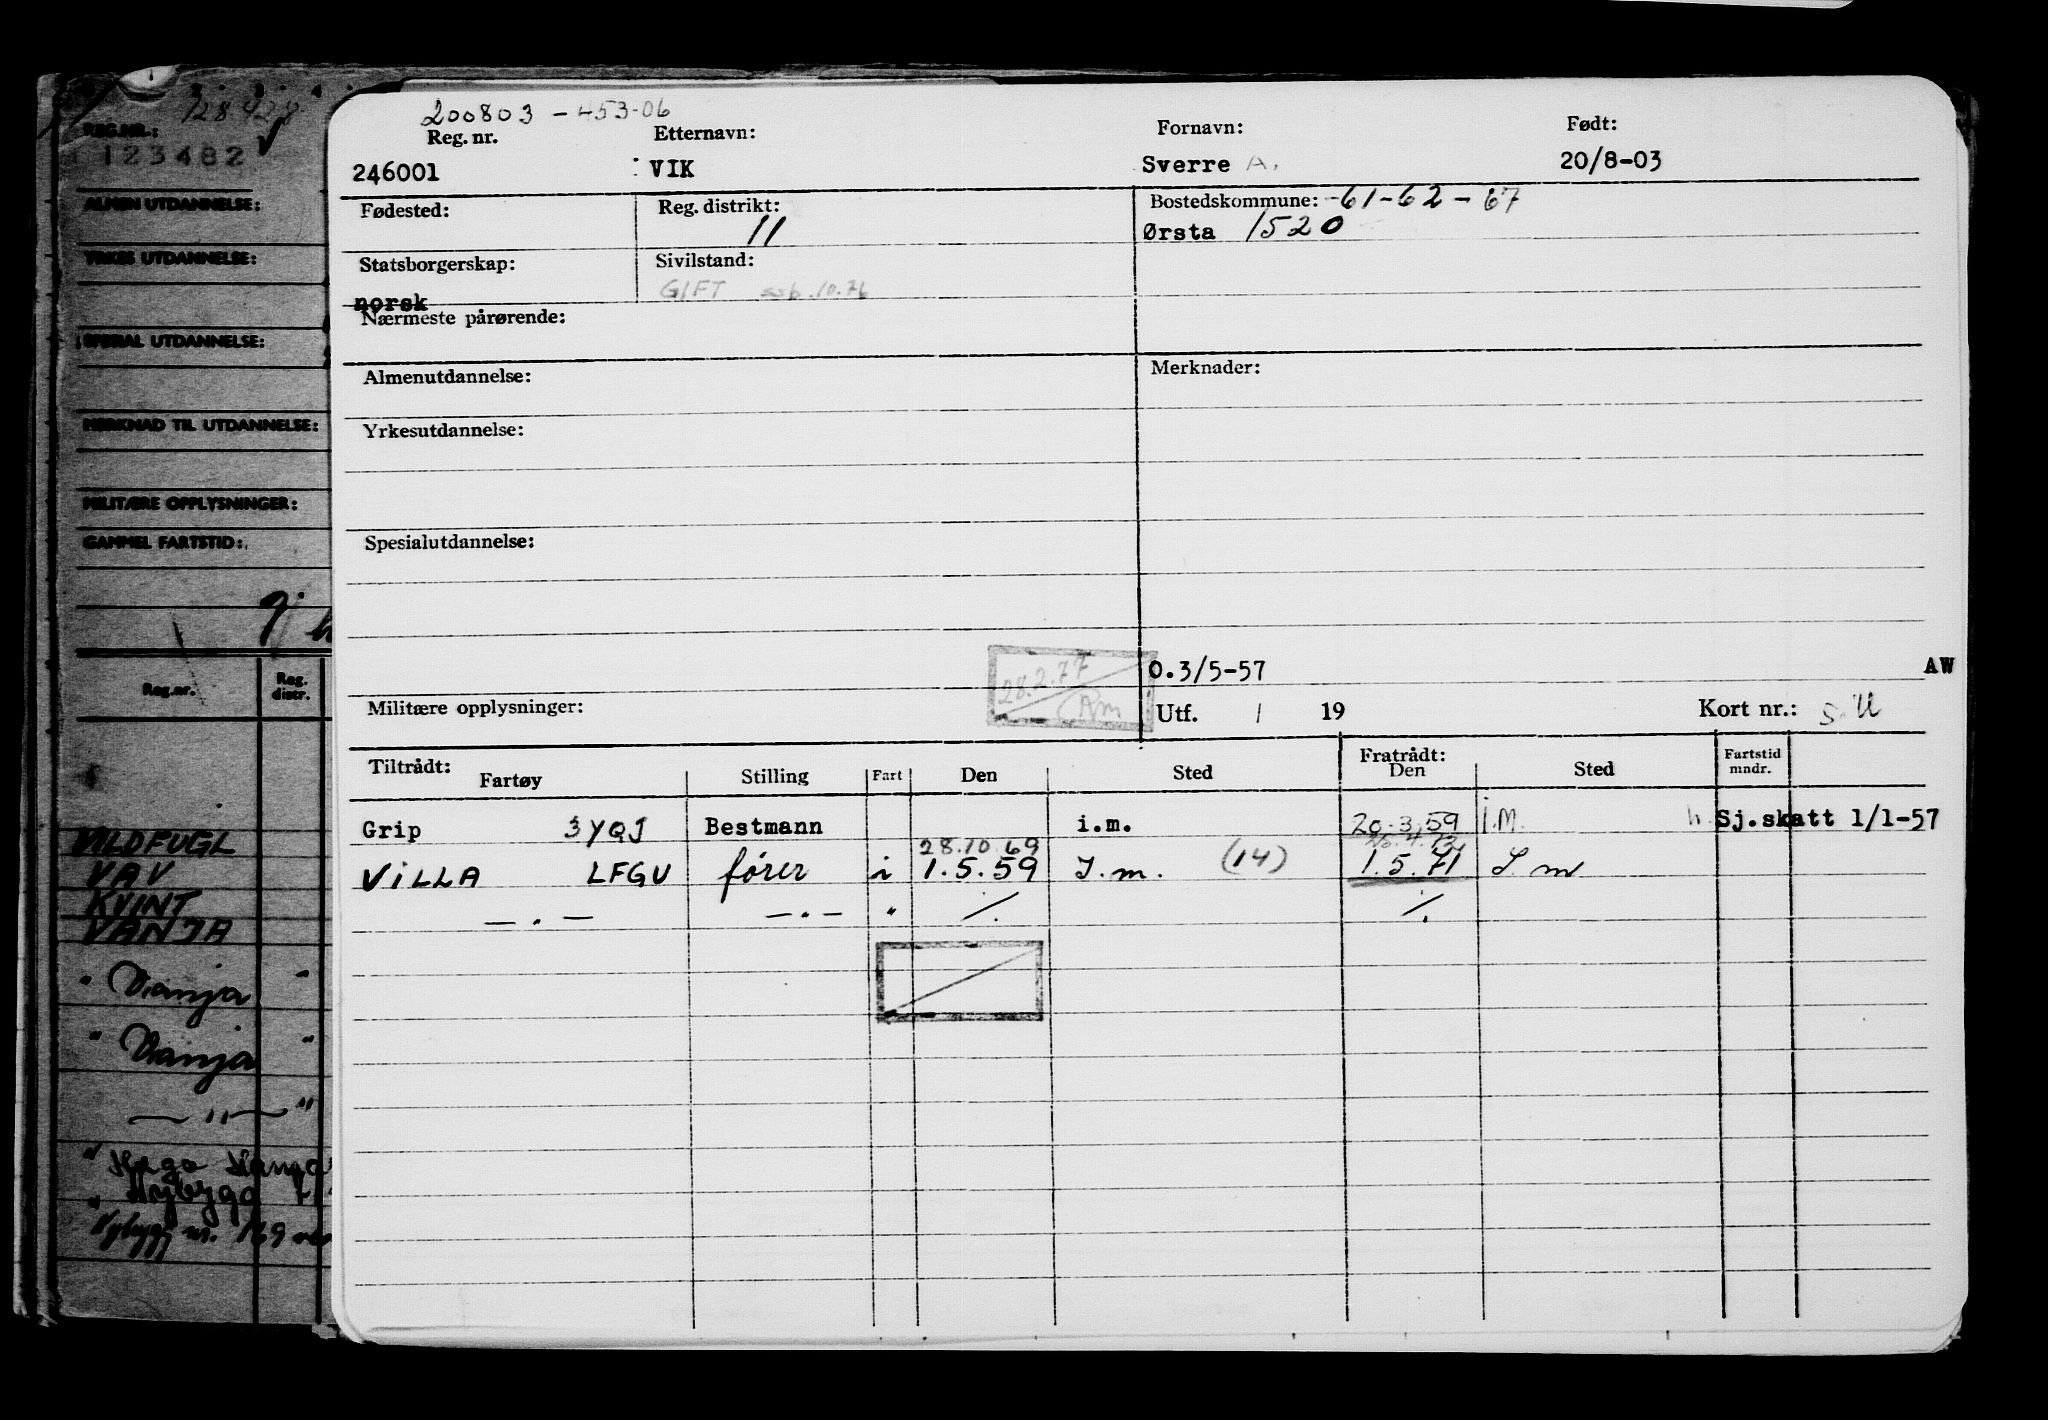 200803 - 453-06
Reg. nr. Etternavn: Fornavn: Født:
246001 VIK Sverre A. 20/8-03
Fødested: Reg. distrikt: 11 Bostedskommune: -61-62-67
Ørsta 1520
Statsborgerskap: norsk Sivilstand: GIFT ssb.10.76
Nærmeste pårørende:
Almenutdannelse: Merknader:
Yrkesutdannelse:
Spesialutdannelse:
28.2.77
O.3/5-57 AW
Militære opplysninger: Utf. / 19 Kort nr.:
Tiltrådt: Fratrådt:
Fartøy Stilling Fart Den Sted Den Sted Fartstid mndr.
Grip 3YQJ Bestmann i.m. 20.3.59 i.M. Sj.skatt 1/1-57
28.10.69
VILLA LFGU fører i 1.5.59 I.m. (14) 1.5.71 I.m
— . — — . — " ./. ./.
128428
REG.NR.:
123482
ALMEN UTDANNELSE:
YRKES UTDANNELSE:
SPESIAL UTDANNELSE:
MERKNAD TIL UTDANNELSE:
MILITÆRE OPPLYSNINGER:
GAMMEL FARTSTID:
Reg.nr. Reg. distr.
VILDFUGL
VAV
KVINT
VANJA
" Vanja "
" Vanja "
— " — "